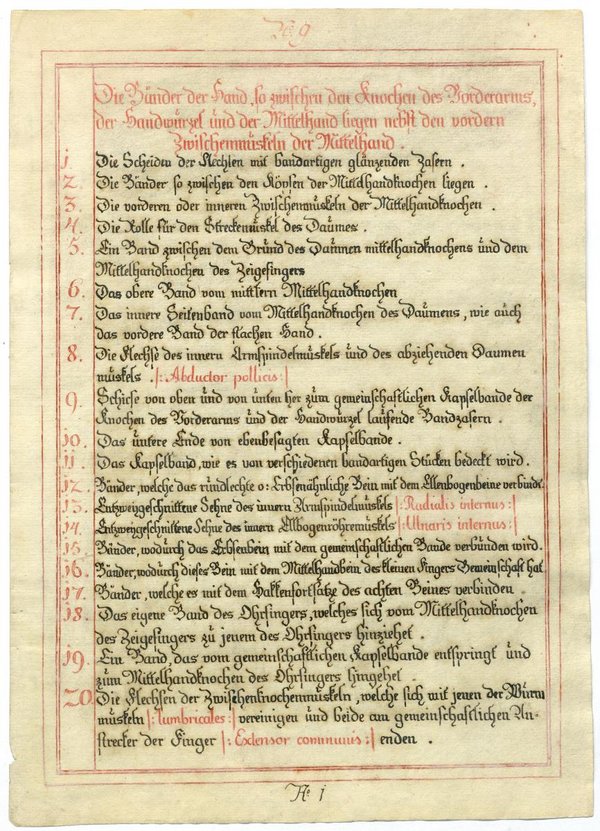 Die Bänder der Hand, so zwischen den Knochen des Vorderarms,
der Handwürzel und der Mittelhand liegen nebst den vordern
Zwischenmüskeln der Mittelhand.
1. Die Scheiden der Flechsen mit bandartigen glänzenden Fasern.
2. Die Bänder so zwischen den Köpfen der Mittelhandknochen liegen.
3. Die vorderen oder inneren Zwischenmüskeln der Mittelhandknochen.
4. Die Rolle für den Streckmüskel des Daumes.
5. Ein Band zwischen dem Gründ des Daumen mittelhandknochens und dem
Mittelhandknochen des Zeigefingers
6. Das obere Band vom mittlern Mittelhandknochen
7. Das innere Seitenband vom Mittelhandknochen des Daumens, wie auch
das vordere Band der flachen Hand.
8. Die Flechse des innern Armspindelmüskels und des abziehenden Daumen
müskels. |: Abductor pollicis :|
9. Schiefe von oben und von unten her zum gemeinschaftlichen Kapselbande der
Knochen des Vorderarms und der Handwürzel laufende Bandfasern.
10. Das untere Ende von ebenbesagten Kapselbande.
11. Das Kapselband, wie es von verschiedenen bandartigen Stücken bedeckt wird.
12. Bänder, welche das rundlechte o: Erbsenähnliche Bein mit dem Ellenbogenbeine verbindt.
13. Entzweigeschnittene Sehne des innern Armspindelmüskels |: Radialis internus :|
14. Entzweygeschnittene Sehne des innern Elbogenröhremüskels |: Ulnaris internus :|
15. Bänder, wodurch das Erbsenbein mit dem gemeinschaftlichen Bande verbünden wird.
16. Bänder, wodurch dieses Bein mit dem Mittelhandbein des kleinen Fingers Gemeinschaft hat
17. Bänder, welche es mit dem Hakkenfortsatze des achten Beines verbinden.
18. Das eigene Band des Ohrfingers, welches sich vom Mittelhandknochen
des Zeigefingers zü jenem des Ohrfingers hinziehet.
19. Ein Band, das vom gemeinschaftlichen Kapselbande entspringt und
züm Mittelhandknochen des Ohrfingers hingehet.
20. Die Flechsen der Zwischenknochenmüskeln, welche sich mit jenen der Würm
müskeln |: lumbricales :| vereinigen und beide am gemeinschaftlichen An-
strecker der Finger |: Extensor communis :| enden.
No 1